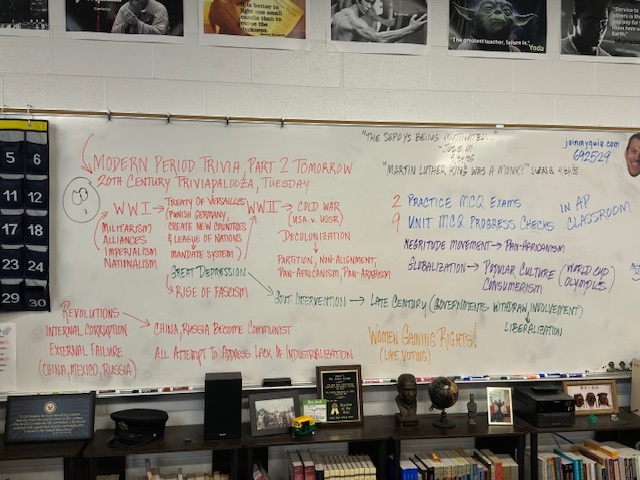 It is better to
light one small
candle than to
darkness.
"The greatest teacher, failure is."
Yoda
"Service to
5 6
11 12
17 18
23 24
29 30
MODERN PERIOD TRIVIA, PART 2 TOMORROW
20TH CENTURY TRIVIAPALOOZA, TUESDAY
WWI → TREATY OF VERSAILLES
(PUNISH GERMANY,
CREATE NEW COUNTRIES
& LEAGUE OF NATIONS
MANDATE SYSTEM)
MILITARISM
ALLIANCES
IMPERIALISM
NATIONALISM
GREAT DEPRESSION
→ RISE OF FASCISM
WWII → COLD WAR
(USA v. USSR)
DECOLONIZATION
PARTITION, NON-ALIGNMENT,
PAN-AFRICANISM, PAN-ARABISM
GOVT. INTERVENTION → LATE CENTURY (GOVERNMENTS WITHDRAW, INVOLVEMENT)
LIBERALIZATION
REVOLUTIONS
INTERNAL CORRUPTION
EXTERNAL FAILURE
(CHINA, MEXICO, RUSSIA)
CHINA, RUSSIA BECOME COMMUNIST
ALL ATTEMPT TO ADDRESS LACK OF INDUSTRIALIZATION
WOMEN GAINING RIGHTS!
(LIKE VOTING)
"THE SEPOYS BEING
"MARTIN LUTHER KING WAS A MONK?"
joinmyquiz.com
692529
2 PRACTICE MCQ EXAMS
9 UNIT MCQ PROGRESS CHECKS
IN AP
CLASSROOM
NEGRITUDE MOVEMENT → PAN-AFRICANISM
GLOBALIZATION → POPULAR CULTURE
CONSUMERISM
(WORLD CUP
OLYMPICS)